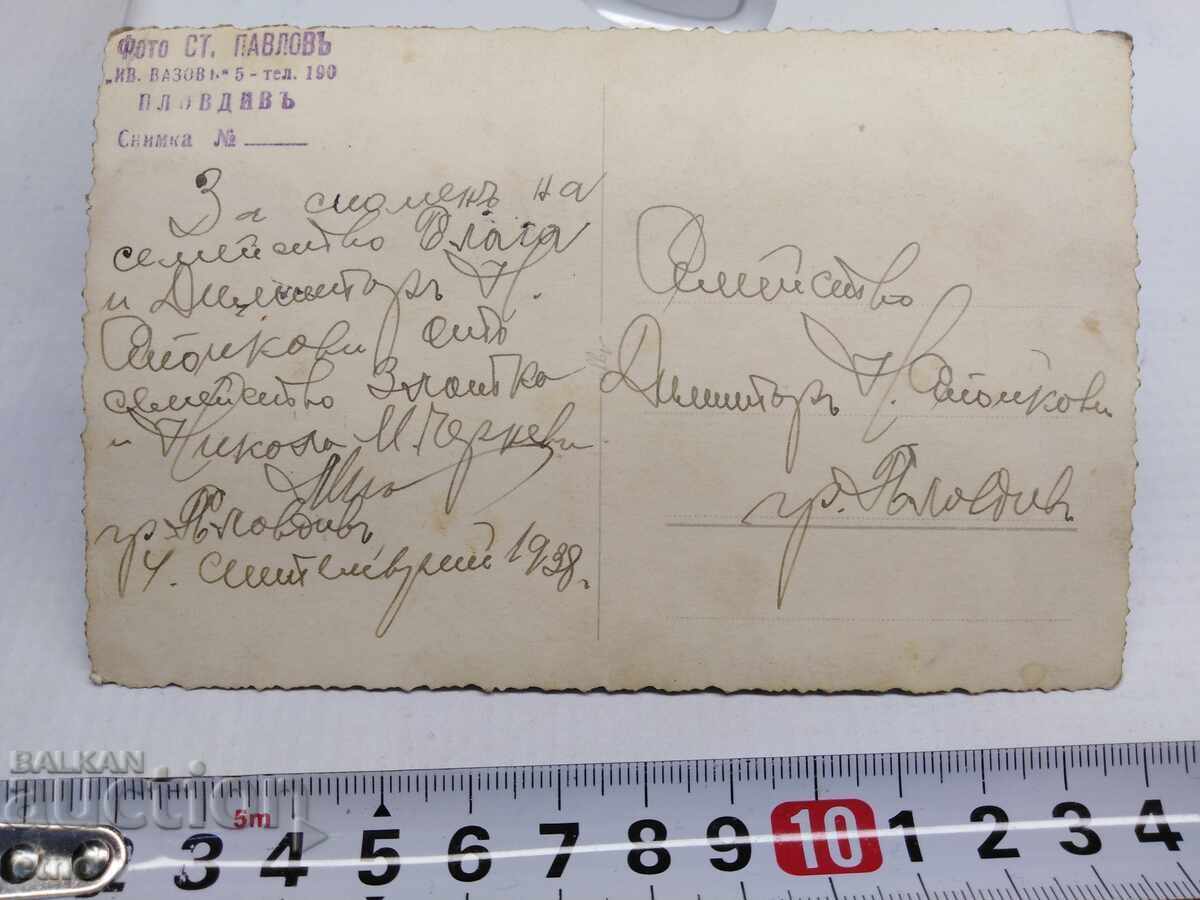 Фото СТ. ПАВЛОВЪ
„ИВ. ВАЗОВЪ“ 5 - тел. 190
ПЛОВДИВЪ
Снимка №
За споменъ на
семейство Влага
и Димитъръ Н.
Стойкови отъ
семейство Златка
и Никола М. Чернєви
гр. Пловдивъ
4. Септемврий 1938 г.
Семейство
Димитъръ Н. Стойкови
гр. Пловдивъ
BALKAN
auction
5m
2 3 4 5 6 7 8 9 10 1 2 3 4